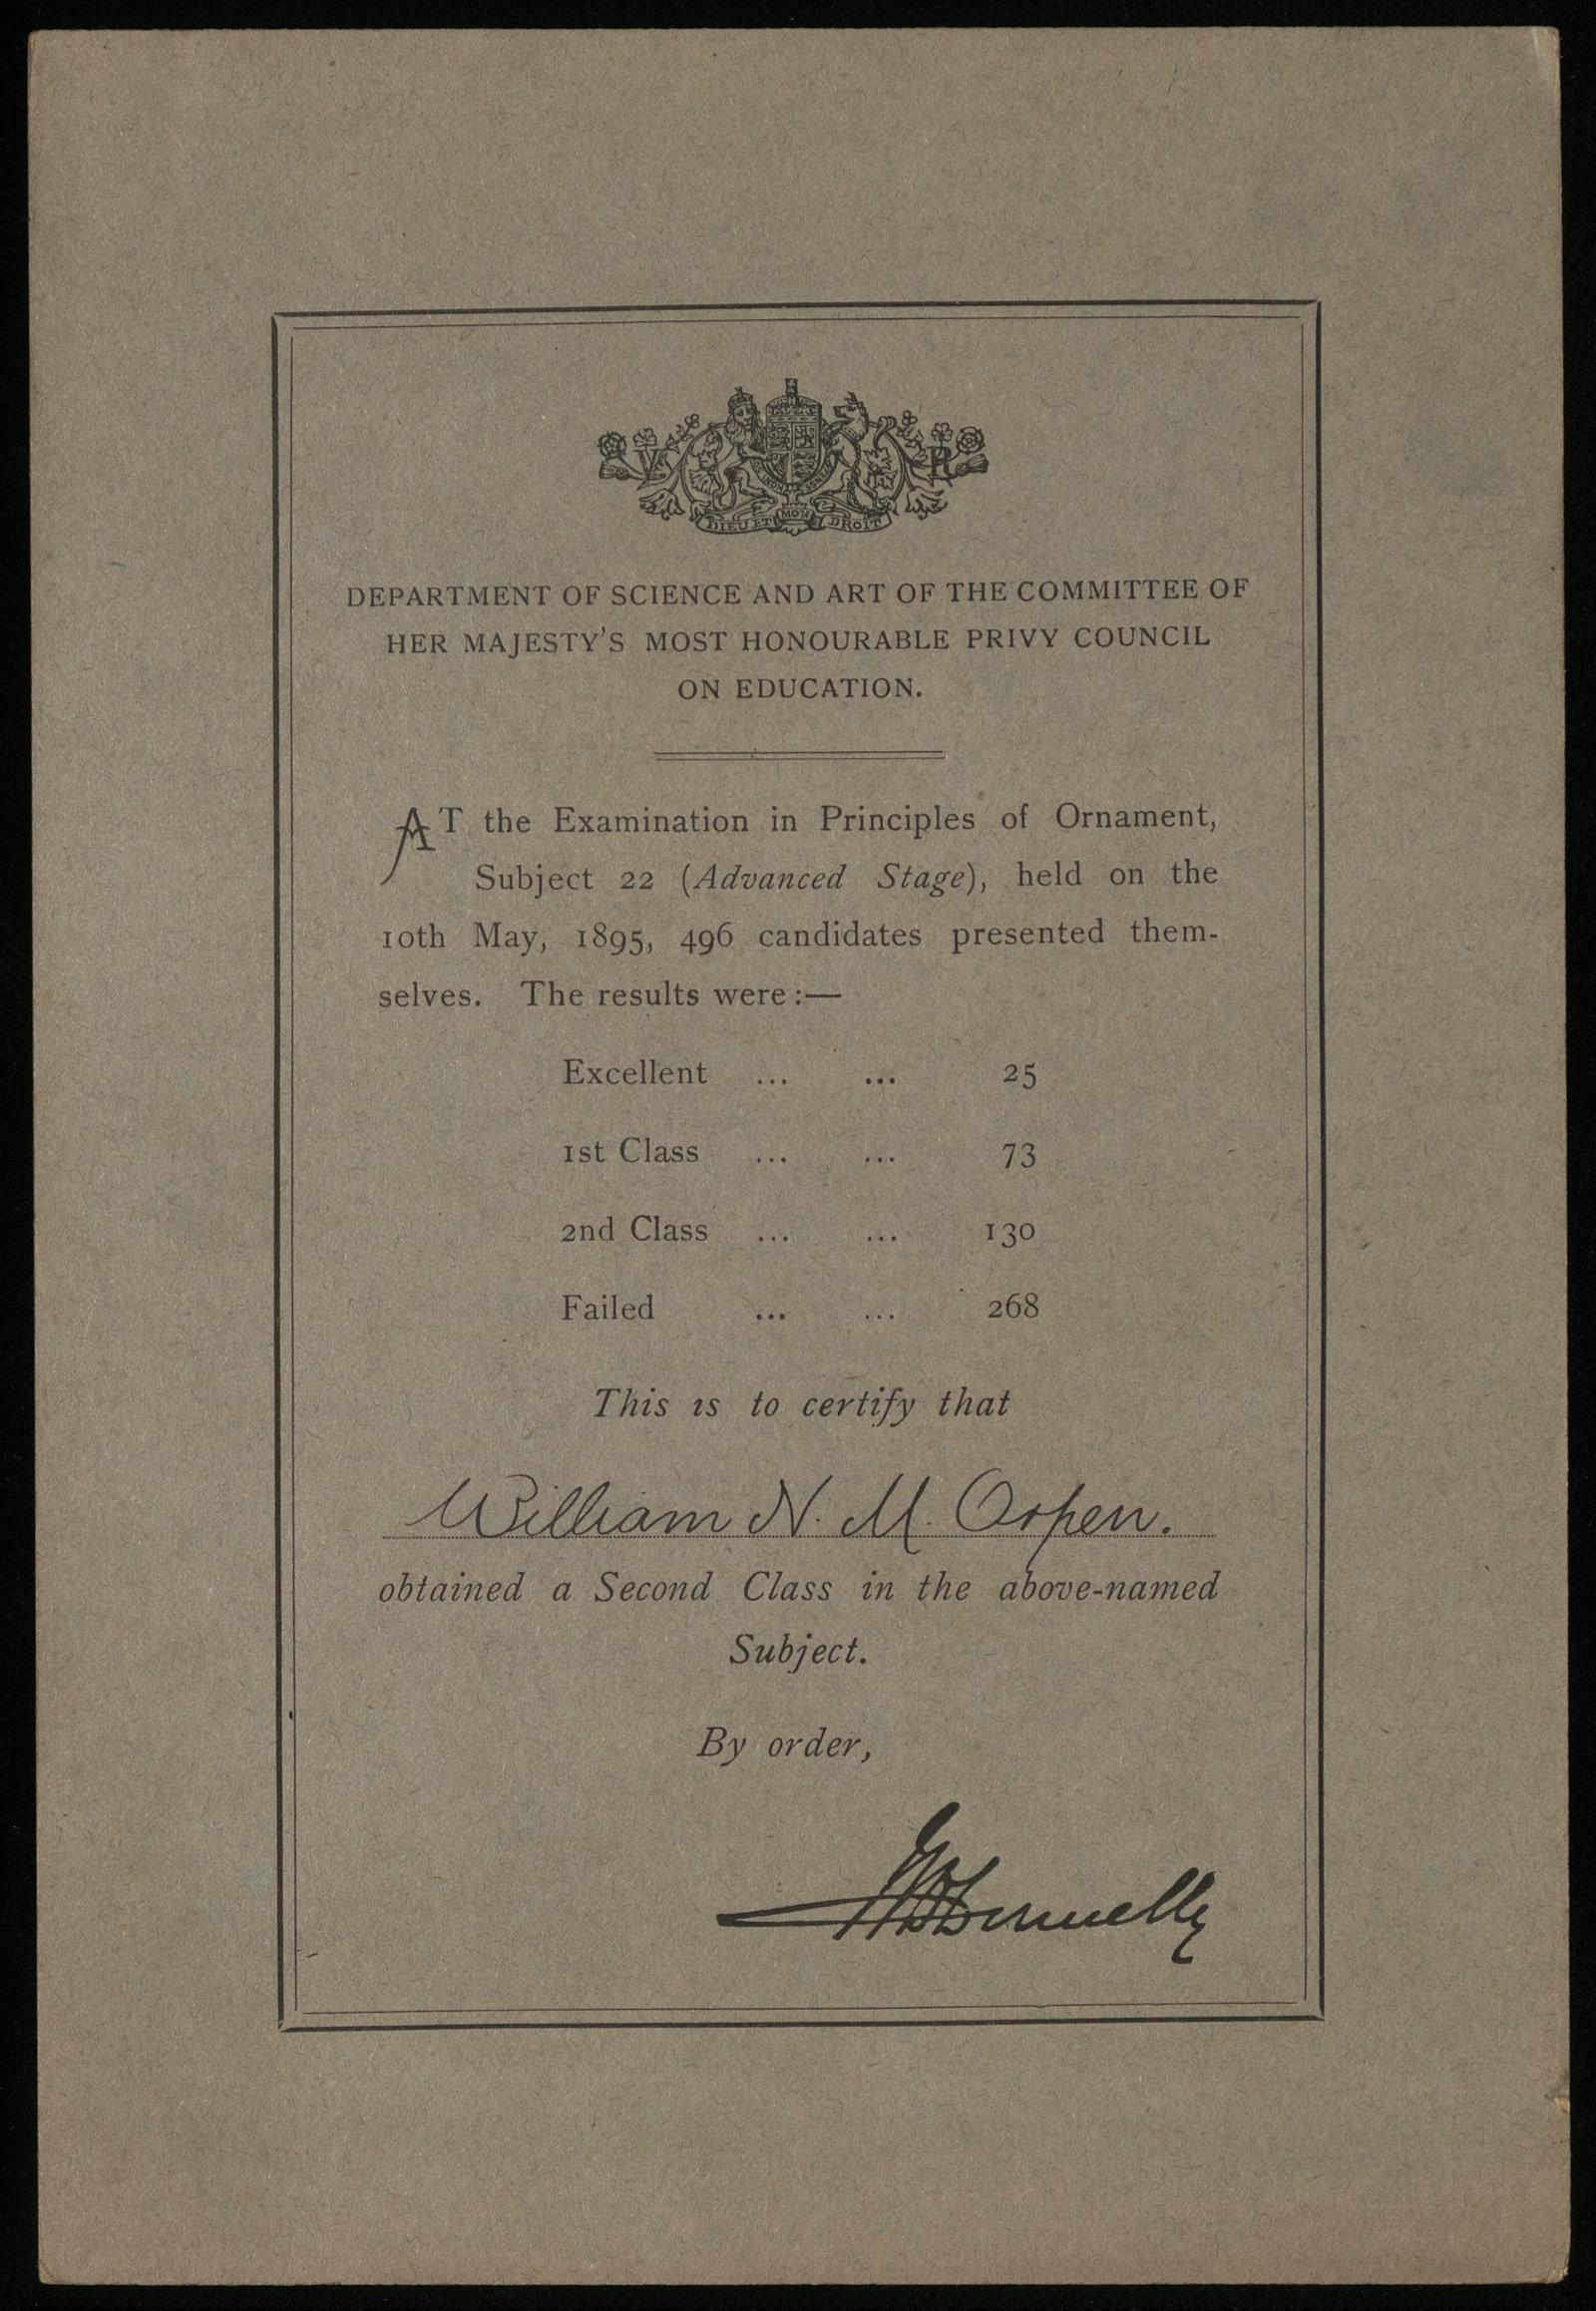 V R
DIEU ET MON DROIT
DEPARTMENT OF SCIENCE AND ART OF THE COMMITTEE OF
HER MAJESTY'S MOST HONOURABLE PRIVY COUNCIL
ON EDUCATION.
AT the Examination in Principles of Ornament,
Subject 22 (Advanced Stage), held on the
10th May, 1895, 496 candidates presented them-
selves. The results were:—
Excellent ... ... 25
1st Class ... ... 73
2nd Class ... ... 130
Failed ... ... 268
This is to certify that
William N. M. Orpen.
obtained a Second Class in the above-named
Subject.
By order,
Donnelly